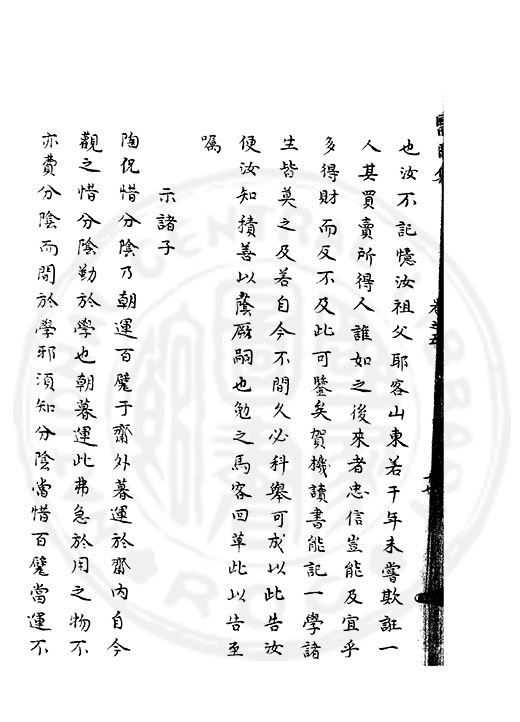 也汝不記憶汝祖父耶客山東若干年未嘗欺誑一
人其買賣所得人誰如之後來者忠信豈能及宜乎
多得財而反不及此可鑒矣賀機讀書能記一學諸
生皆莫之及若自今不間久必科舉可成以此告汝
便汝知積善以蔭厥嗣也勉之馬客回草此以告至
囑
示諸子
陶侃惜分陰乃朝運百甓于齋外暮運於齋內自今
觀之惜分陰勤於學也朝暮運此弗急於用之物不
亦費分陰而閒於學邪須知分陰當惜百甓當運不